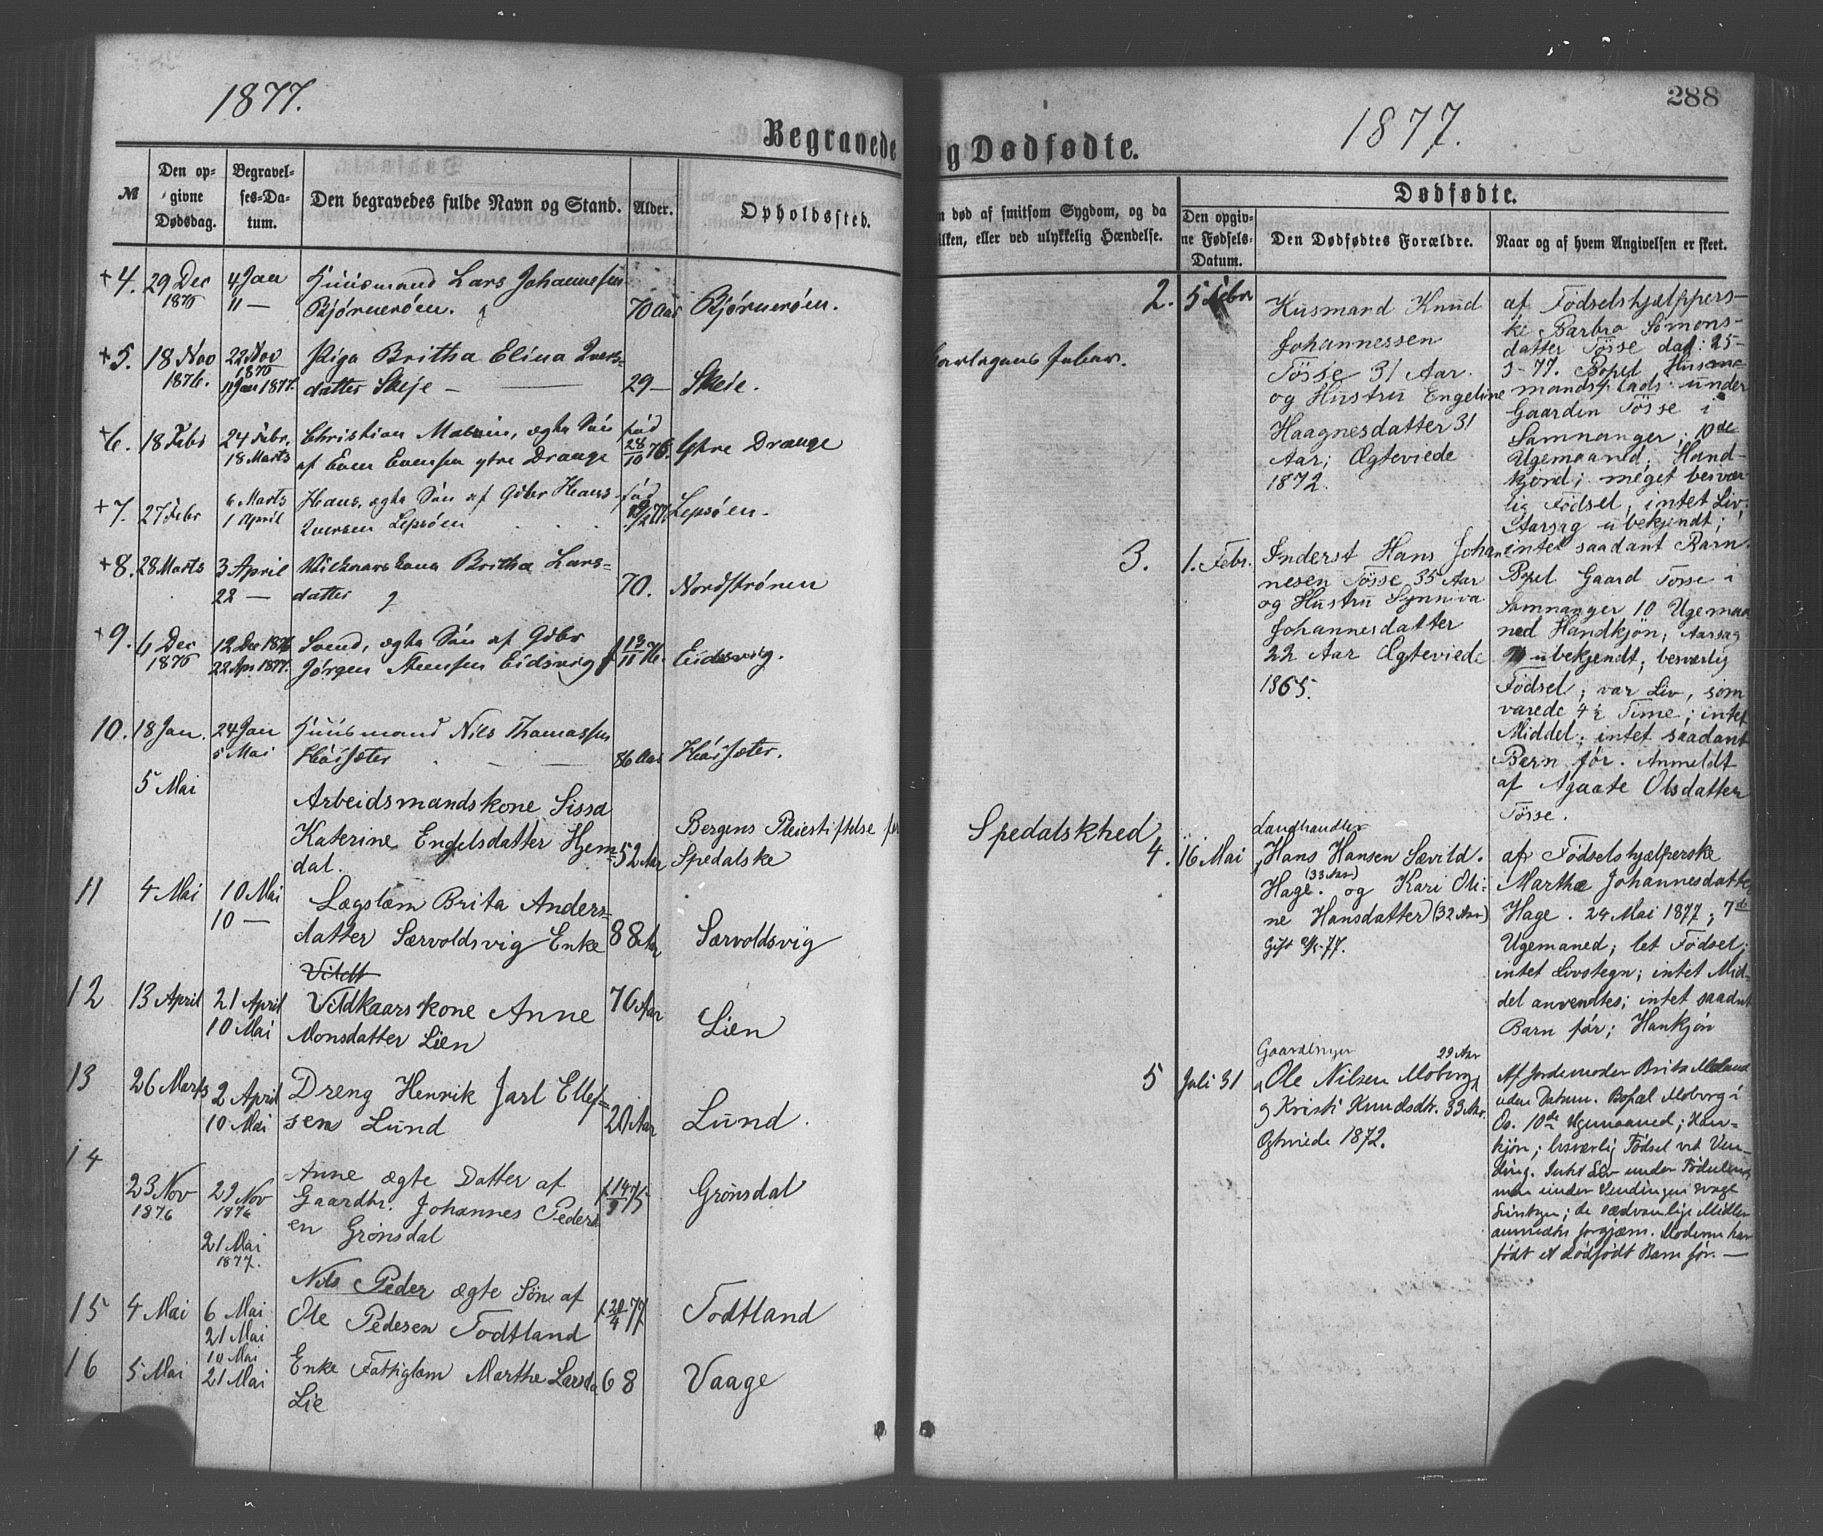 1877.
Begravede
№
Den opgivne Dødsdag.
Begravelses-Datum.
Den begravedes fulde Navn og Stand.
Alder.
Opholdssted.
+4. 29 Dec 1876 4 Jan 11 — Huusmand Lars Johannesen
Bjørnerøen. 70 Aar Bjørnerøen.
+5. 18 Nov 1876. 22 Nov 1876 Pige Brithа Elina Ivers-
11 Jan 1877. datter Skeje — 29 — Skeie.
+6. 18 Febr 24 Febr. Christian ægte Søn fød
18 Marts af Even Evensen ytre Drange 28/10 76. Ytre Drange
+7. 27 Febr 6 Marts Hans, ægte Søn af Gdbr Hans fød
1 April Iversen Lepsøen Lepsøen.
+8. 28 Marts 3 April Britha Lars-
22 — datter 70. Nordstrønen
+9. 6 Dec 1876 12 Dec 1876 Svend, ægte Søn af Gdbr
22 Apr. 1877. Jørgen Eidsvig f 13/11 76. Eidsvig.
10. 18 Jan. 24 Jan Huusmand Nils Thomassen
5 Mai Haisæter 86 Aar Haisæter.
5 Mai
Arbeidsmandskone Sissa
Katerine Engelsdatter Hjem- Bergens Pleiestiftelse for
dal. 52 Aar Spedalske
11 4 Mai 10 Mai Lægslem Brita Anders-
10 — datter Særvoldsvig Enke 88 Aar Særvoldsvig
Vildt
12 13 April 21 April Vildkaarskone Anne 76 Aar
10 Mai Monsdatter Lien Lien
13 26 Marts 2 April Dreng Henrik Jarl Ellef-
10 Mai sen Lund 20 Aar Lund.
14
23 Nov 1876 29 Nov 1876 Anne ægte Datter af
Gaardbr. Johannes Peders f. 14/9 75 Grønsdal
21 Mai 1877. en Grønsdal
Nils Peder ægte Søn af
15 4 Mai 6 Mai Ole Pedersen Todtland f. 20/4 77 Todtland
21 Mai
16 5 Mai 10 Mai Enke Fattiglem Marthe Larsda
21 Mai Lie 68 Vaage
288
1877.
og Dødfødte.
n død af smitsom Sygdom, og da
ilken, eller ved ulykkelig Hændelse.
Dødfødte.
Den opgivne Fødsels-Datum.
Den Dødfødtes Forældre.
Naar og af hvem Angivelsen er skeet.
Spedalskhed
2. 5 Febr
Husmand Knud
Johannessen
Tøsse 31 Aar.
og Hustru Engeline
Haagnesdatter 31
Aar; Ægteviede
1872.
af Fødselshjælppers-
ke Barbro Simons-
datter Tøsse dat: 25-
3-77. Bopel Hus-
mandsplads under
Gaarden Tøsse i
Samnanger; 10de
Ugemaaned; Hand-
kjønd; meget besvær-
lig Fødsel, intet Liv;
Aarsag ubekjendt;
intet saadant Barn.
3. 1. Febr.
Inderst Hans Johan
nesen Tøsse 35 Aar
og Hustru Synneva
Johannesdatter
22 Aar Ægteviede
1865.
Bopel Gaard Tosse i
Samnanger 10 Ugemaa
ned Handkjøn; Aarsag
ubekjendt; besværlig
Fødsel; var Liv, som
varede 4½ Time; intet
Middel; intet saadant
Bern før. Anmeldt
af Agaate Olsdatter
Tøsse.
4. 16 Mai
Landhandler
Hans Hansen Sævild.
Hage. (33 Aar) og Kari Oli-
ne Hansdatter (32 Aar)
Gift -77.
af Fødselshjælperske
Marthe Johannesdatter
Hage. 24 Mai 1877; 7de
Ugemaned; let Fødsel;
intet Livstegn; intet Mid-
del anvendtes; intet saadant
Barn før; Hankjøn
5 Juli 31
Gaardbruger 29 Aar
Ole Nilsen Moberg
og Kristi Knudsdtr. 33 Aar.
Ægtviede 1872.
Af Jordemoder Brita
uden Datum. Bopæl Moberg i
Os. 10de Ugemaaned; Han-
kjøn; besværlig Fødsel ved Ven-
ding. Intet Liv under Fødselen,
men under Vendingen svagt
; de sædvanlige Midler
anvendtes forgjæves. Moderen har
født et dødfødt Barn før. —